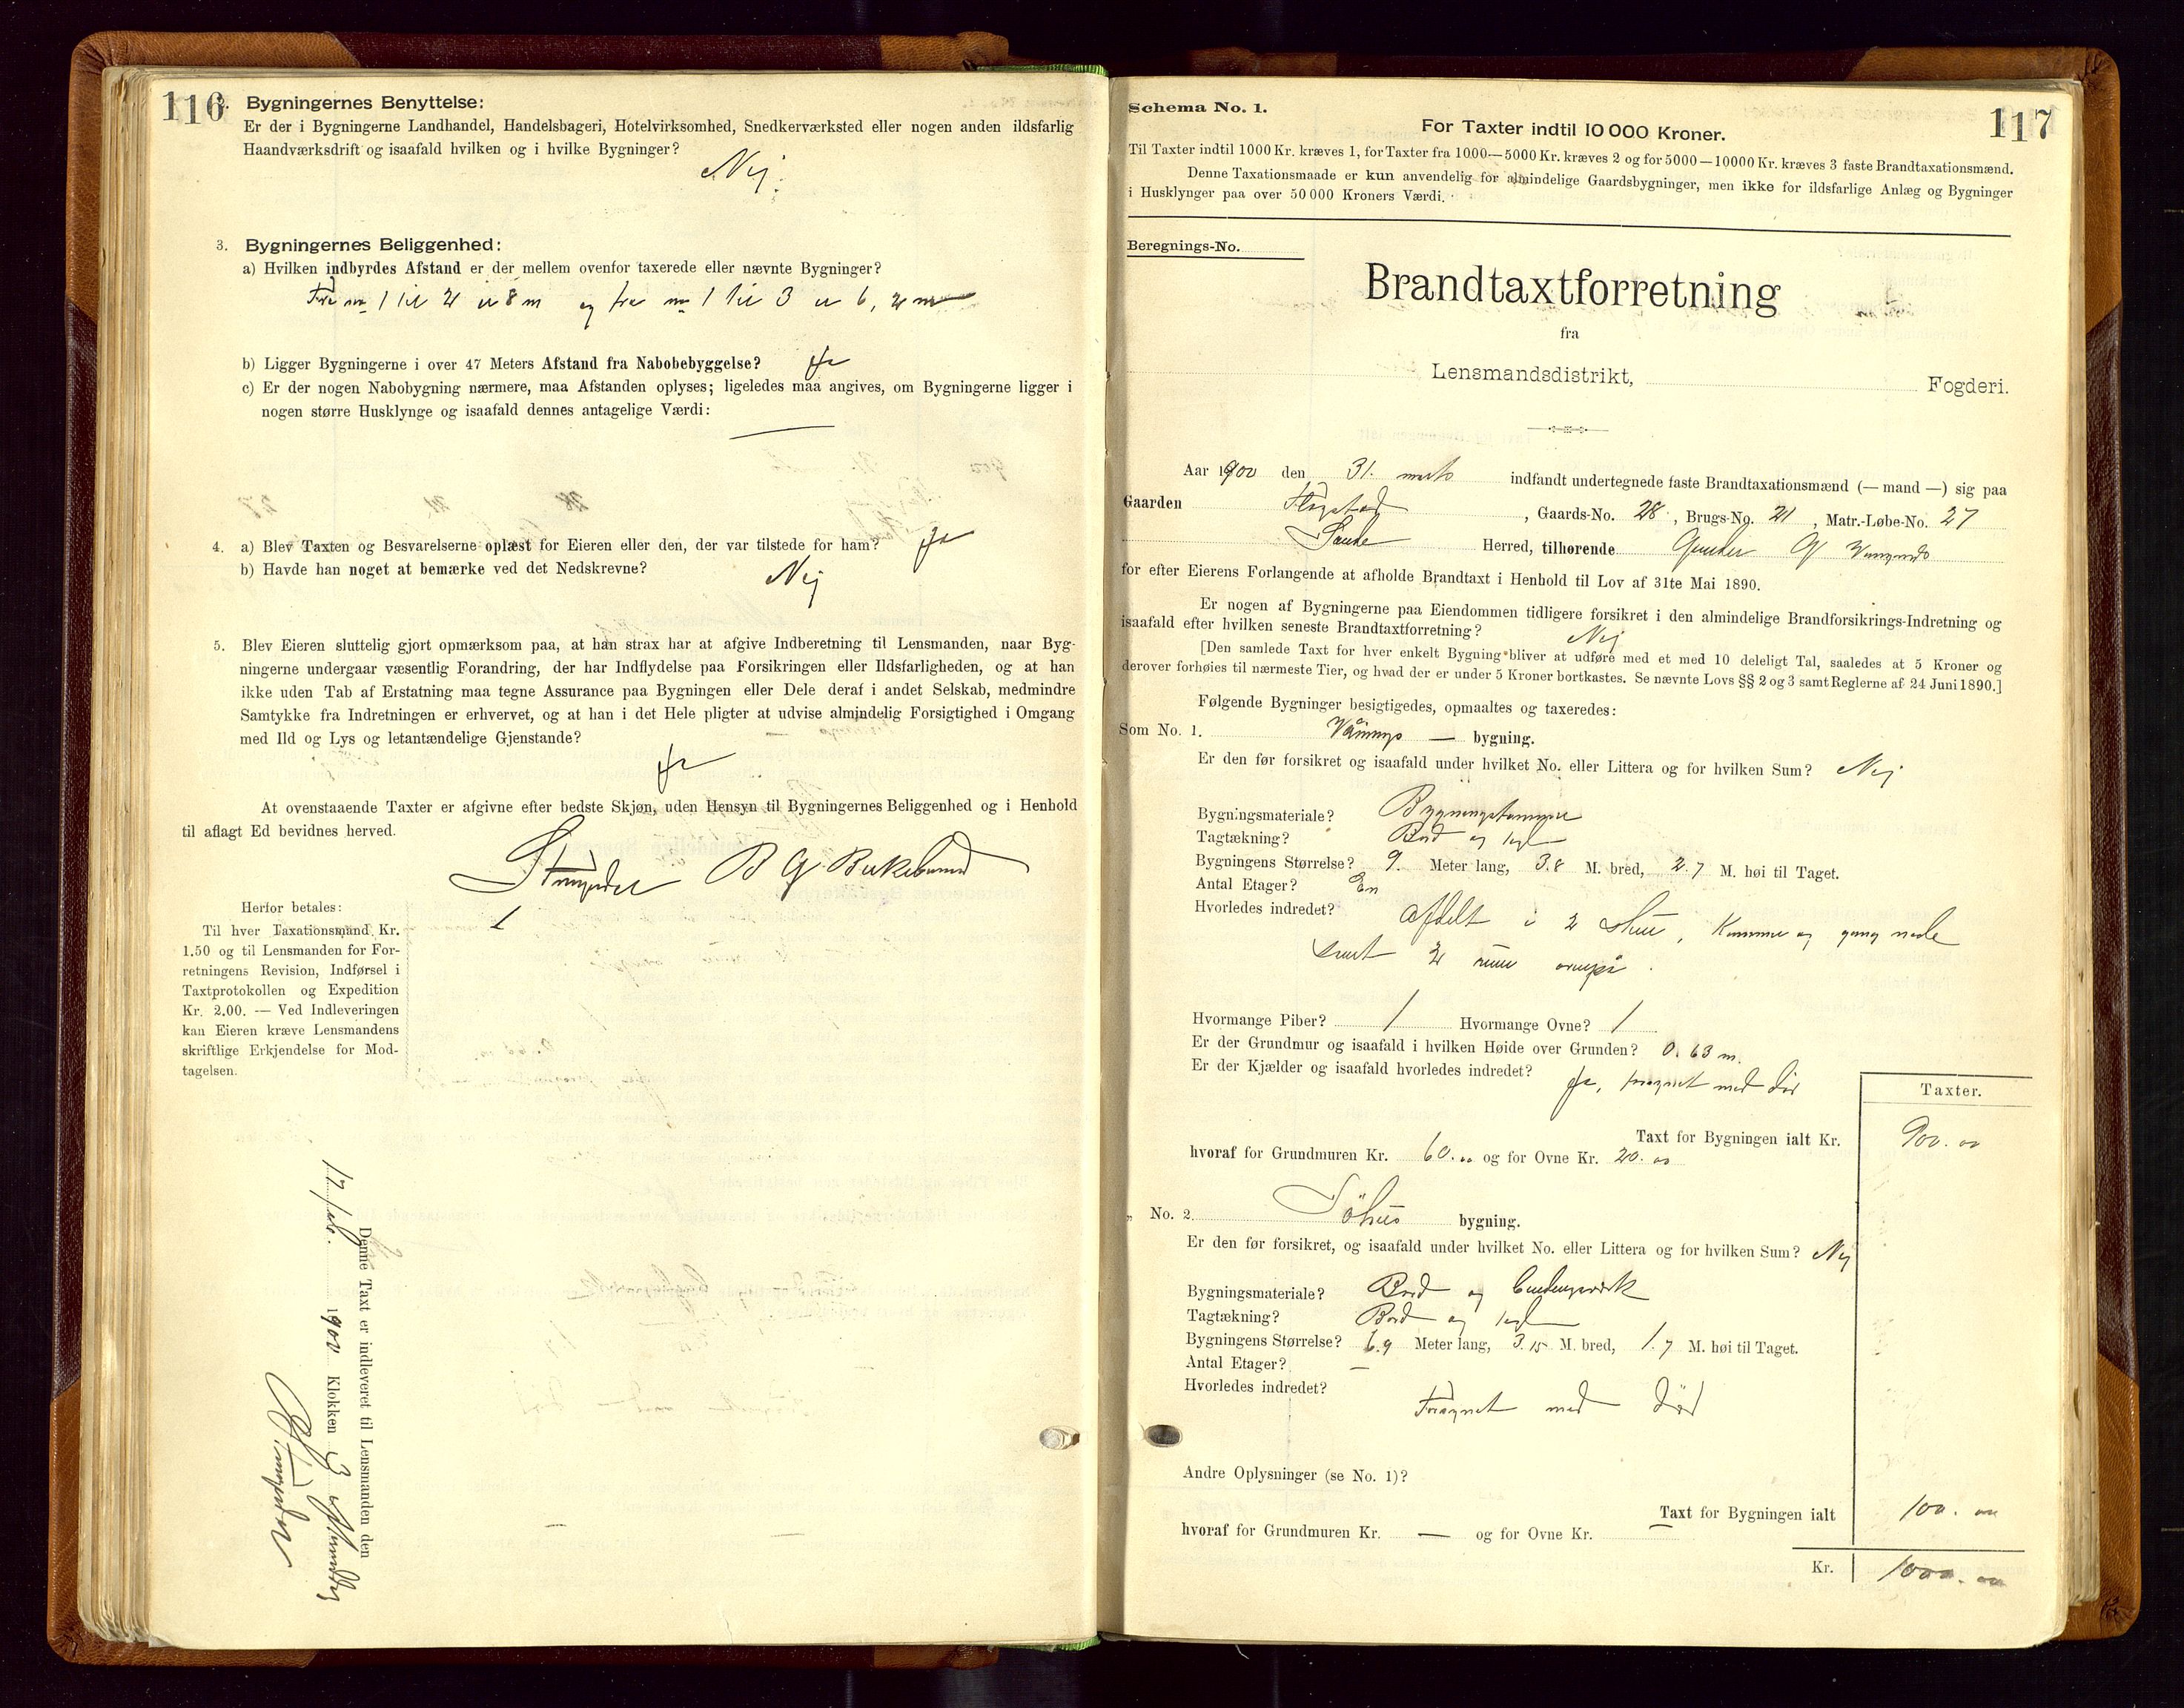 116
2. Bygningernes Benyttelse:
Er der i Bygningerne Landhandel, Handelsbageri, Hotelvirksomhed, Snedkerværksted eller nogen anden ildsfarlig
Haandværksdrift og isaafald hvilken og i hvilke Bygninger?
Nej.
3. Bygningernes Beliggenhed:
a) Hvilken indbyrdes Afstand er der mellem ovenfor taxerede eller nævnte Bygninger?
Fra no 1 til 2 er 8 m og fra no 1 til 3 er 6,2 m
b) Ligger Bygningerne i over 47 Meters Afstand fra Nabobebyggelse? Ja
c) Er der nogen Nabobygning nærmere, maa Afstanden oplyses; ligeledes maa angives, om Bygningerne ligger i
nogen større Husklynge og isaafald dennes antagelige Værdi: —
4. a) Blev Taxten og Besvarelserne oplæst for Eieren eller den, der var tilstede for ham? Ja
b) Havde han noget at bemærke ved det Nedskrevne? Nej
5. Blev Eieren sluttelig gjort opmærksom paa, at han strax har at afgive Indberetning til Lensmanden, naar Byg-
ningerne undergaar væsentlig Forandring, der har Indflydelse paa Forsikringen eller Ildsfarligheden, og at han
ikke uden Tab af Erstatning maa tegne Assurance paa Bygningen eller Dele deraf i andet Selskab, medmindre
Samtykke fra Indretningen er erhvervet, og at han i det Hele pligter at udvise almindelig Forsigtighed i Omgang
med Ild og Lys og letantændelige Gjenstande?
Ja
At ovenstaaende Taxter er afgivne efter bedste Skjøn, uden Hensyn til Bygningernes Beliggenhed og i Henhold
til aflagt Ed bevidnes herved.
B G
Herfor betales:
Til hver Taxationsmand Kr.
1.50 og til Lensmanden for For-
retningens Revision, Indførsel i
Taxtprotokollen og Expedition
Kr. 2.00. — Ved Indleveringen
kan Eieren kræve Lensmandens
skriftlige Erkjendelse for Mod-
tagelsen.
Denne Taxt er indleveret til Lensmanden den
1900 Klokken 3
117
Schema No. 1.
For Taxter indtil 10 000 Kroner.
Til Taxter indtil 1000 Kr. kræves 1, for Taxter fra 1000—5000 Kr. kræves 2 og for 5000—10000 Kr. kræves 3 faste Brandtaxationsmænd.
Denne Taxationsmaade er kun anvendelig for almindelige Gaardsbygninger, men ikke for ildsfarlige Anlæg og Bygninger
i Husklynger paa over 50 000 Kroners Værdi.
Beregnings-No.
Brandtaxtforretning
fra
Lensmandsdistrikt, Fogderi.
Aar 1900 den 31. marts indfandt undertegnede faste Brandtaxationsmænd (— mand —) sig paa
Gaarden , Gaards-No. 28 , Brugs-No. 21 , Matr.-Løbe-No. 27
Herred, tilhørende Gunder G
for efter Eierens Forlangende at afholde Brandtaxt i Henhold til Lov af 31te Mai 1890.
Er nogen af Bygningerne paa Eiendommen tidligere forsikret i den almindelige Brandforsikrings-Indretning og
isaafald efter hvilken seneste Brandtaxtforretning? Nej
[Den samlede Taxt for hver enkelt Bygning bliver at udføre med et med 10 deleligt Tal, saaledes at 5 Kroner og
derover forhøies til nærmeste Tier, og hvad der er under 5 Kroner bortkastes. Se nævnte Lovs §§ 2 og 3 samt Reglerne af 24 Juni 1890.]
Følgende Bygninger besigtigedes, opmaaltes og taxeredes:
Som No. 1. Vånings — bygning.
Er den før forsikret og isaafald under hvilket No. eller Littera og for hvilken Sum? Nej
Bygningsmateriale? Bygningstømmer
Tagtækning? Bord og tegl
Bygningens Størrelse? 9. Meter lang, 3.8 M. bred, 2.7 M. høi til Taget.
Antal Etager? En
Hvorledes indredet? Afdelt i 2 stuer, Kammer og gang nede
samt 2 rum ovenpå.
Hvormange Piber? 1 Hvormange Ovne? 1
Er der Grundmur og isaafald i hvilken Høide over Grunden? 0.63 m.
Er der Kjælder og isaafald hvorledes indredet? Ja, forsynet med dør
Taxter.
Taxt for Bygningen ialt Kr. 900.00
hvoraf for Grundmuren Kr. 60.00 og for Ovne Kr. 20.00
„ No. 2. Söhus bygning.
Er den før forsikret, og isaafald under hvilket No. eller Littera og for hvilken Sum? Nej
Bygningsmateriale? Bord og bindingsværk
Tagtækning? Bord og tegl
Bygningens Størrelse? 6.9 Meter lang, 3.15 M. bred, 1.7 M. høi til Taget.
Antal Etager? —
Hvorledes indredet? Forsynet med dør
Andre Oplysninger (se No. 1)?
Taxt for Bygningen ialt 100.00
hvoraf for Grundmuren Kr. — og for Ovne Kr. —
Kr. 1000.00